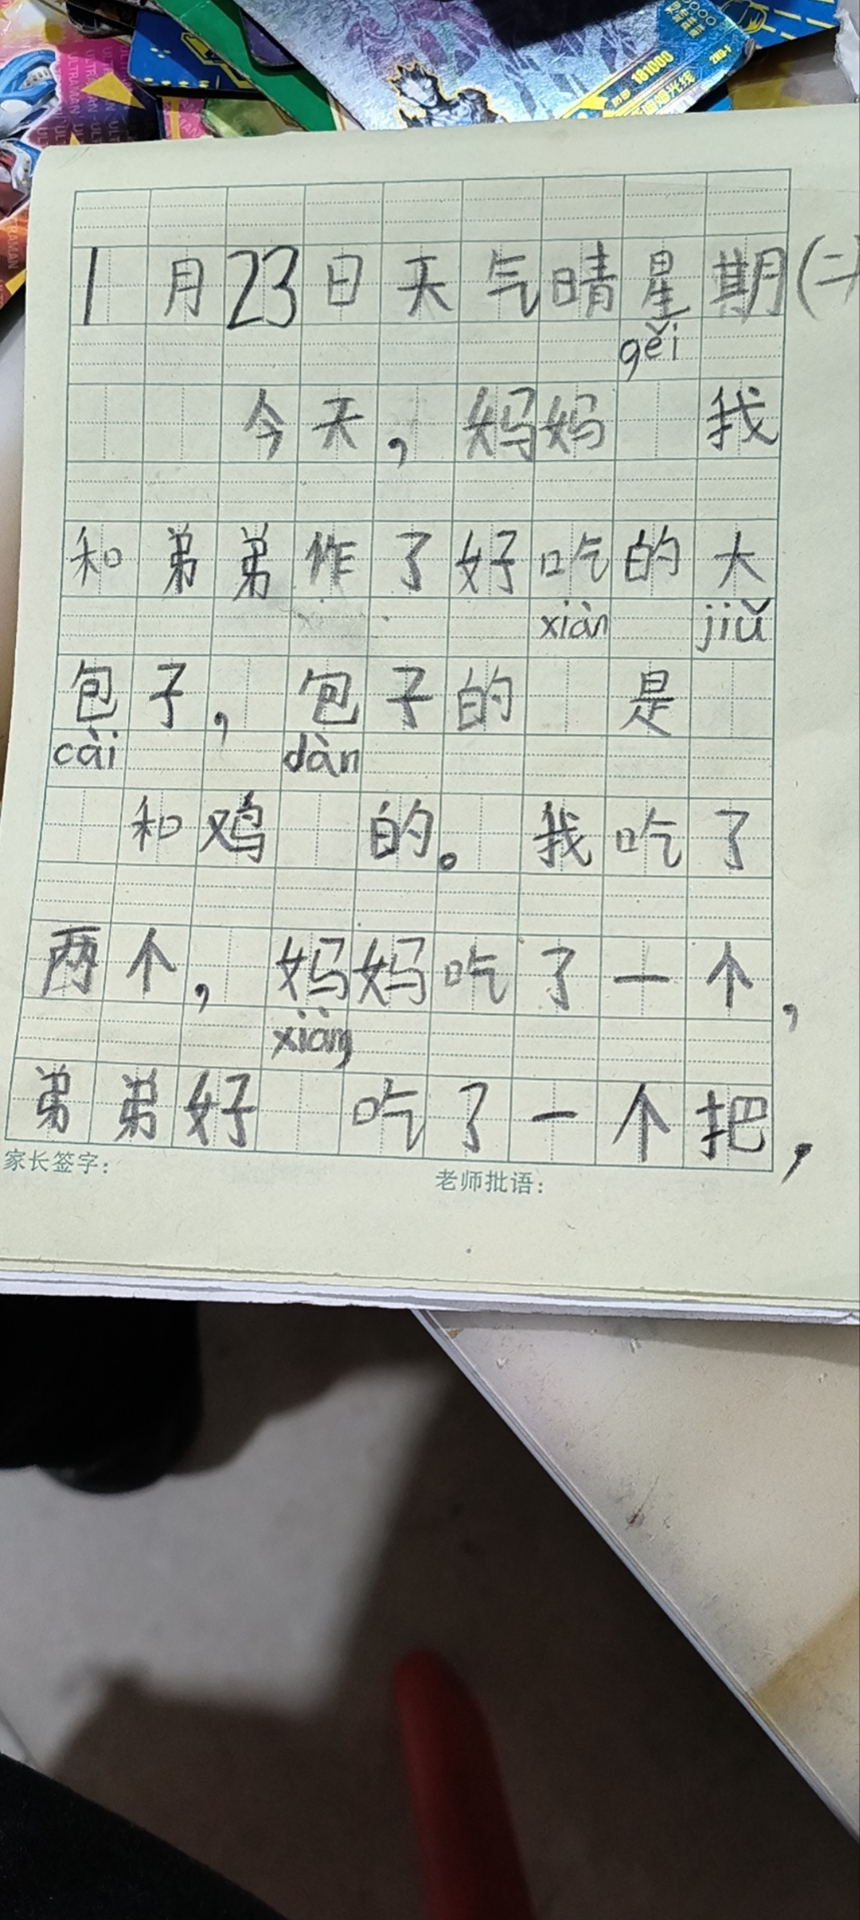 181000
ULTRAMAN
ULTRAMAN
1月23日天气晴星期(二)
gěi
今天，妈妈 我
和弟弟作了好吃的大
xiàn jiǔ
包子，包子的 是
cài dàn
和鸡 的。我吃了
两个，妈妈吃了一个，
xiàng
弟弟好 吃了一个把，
家长签字：
老师批语：